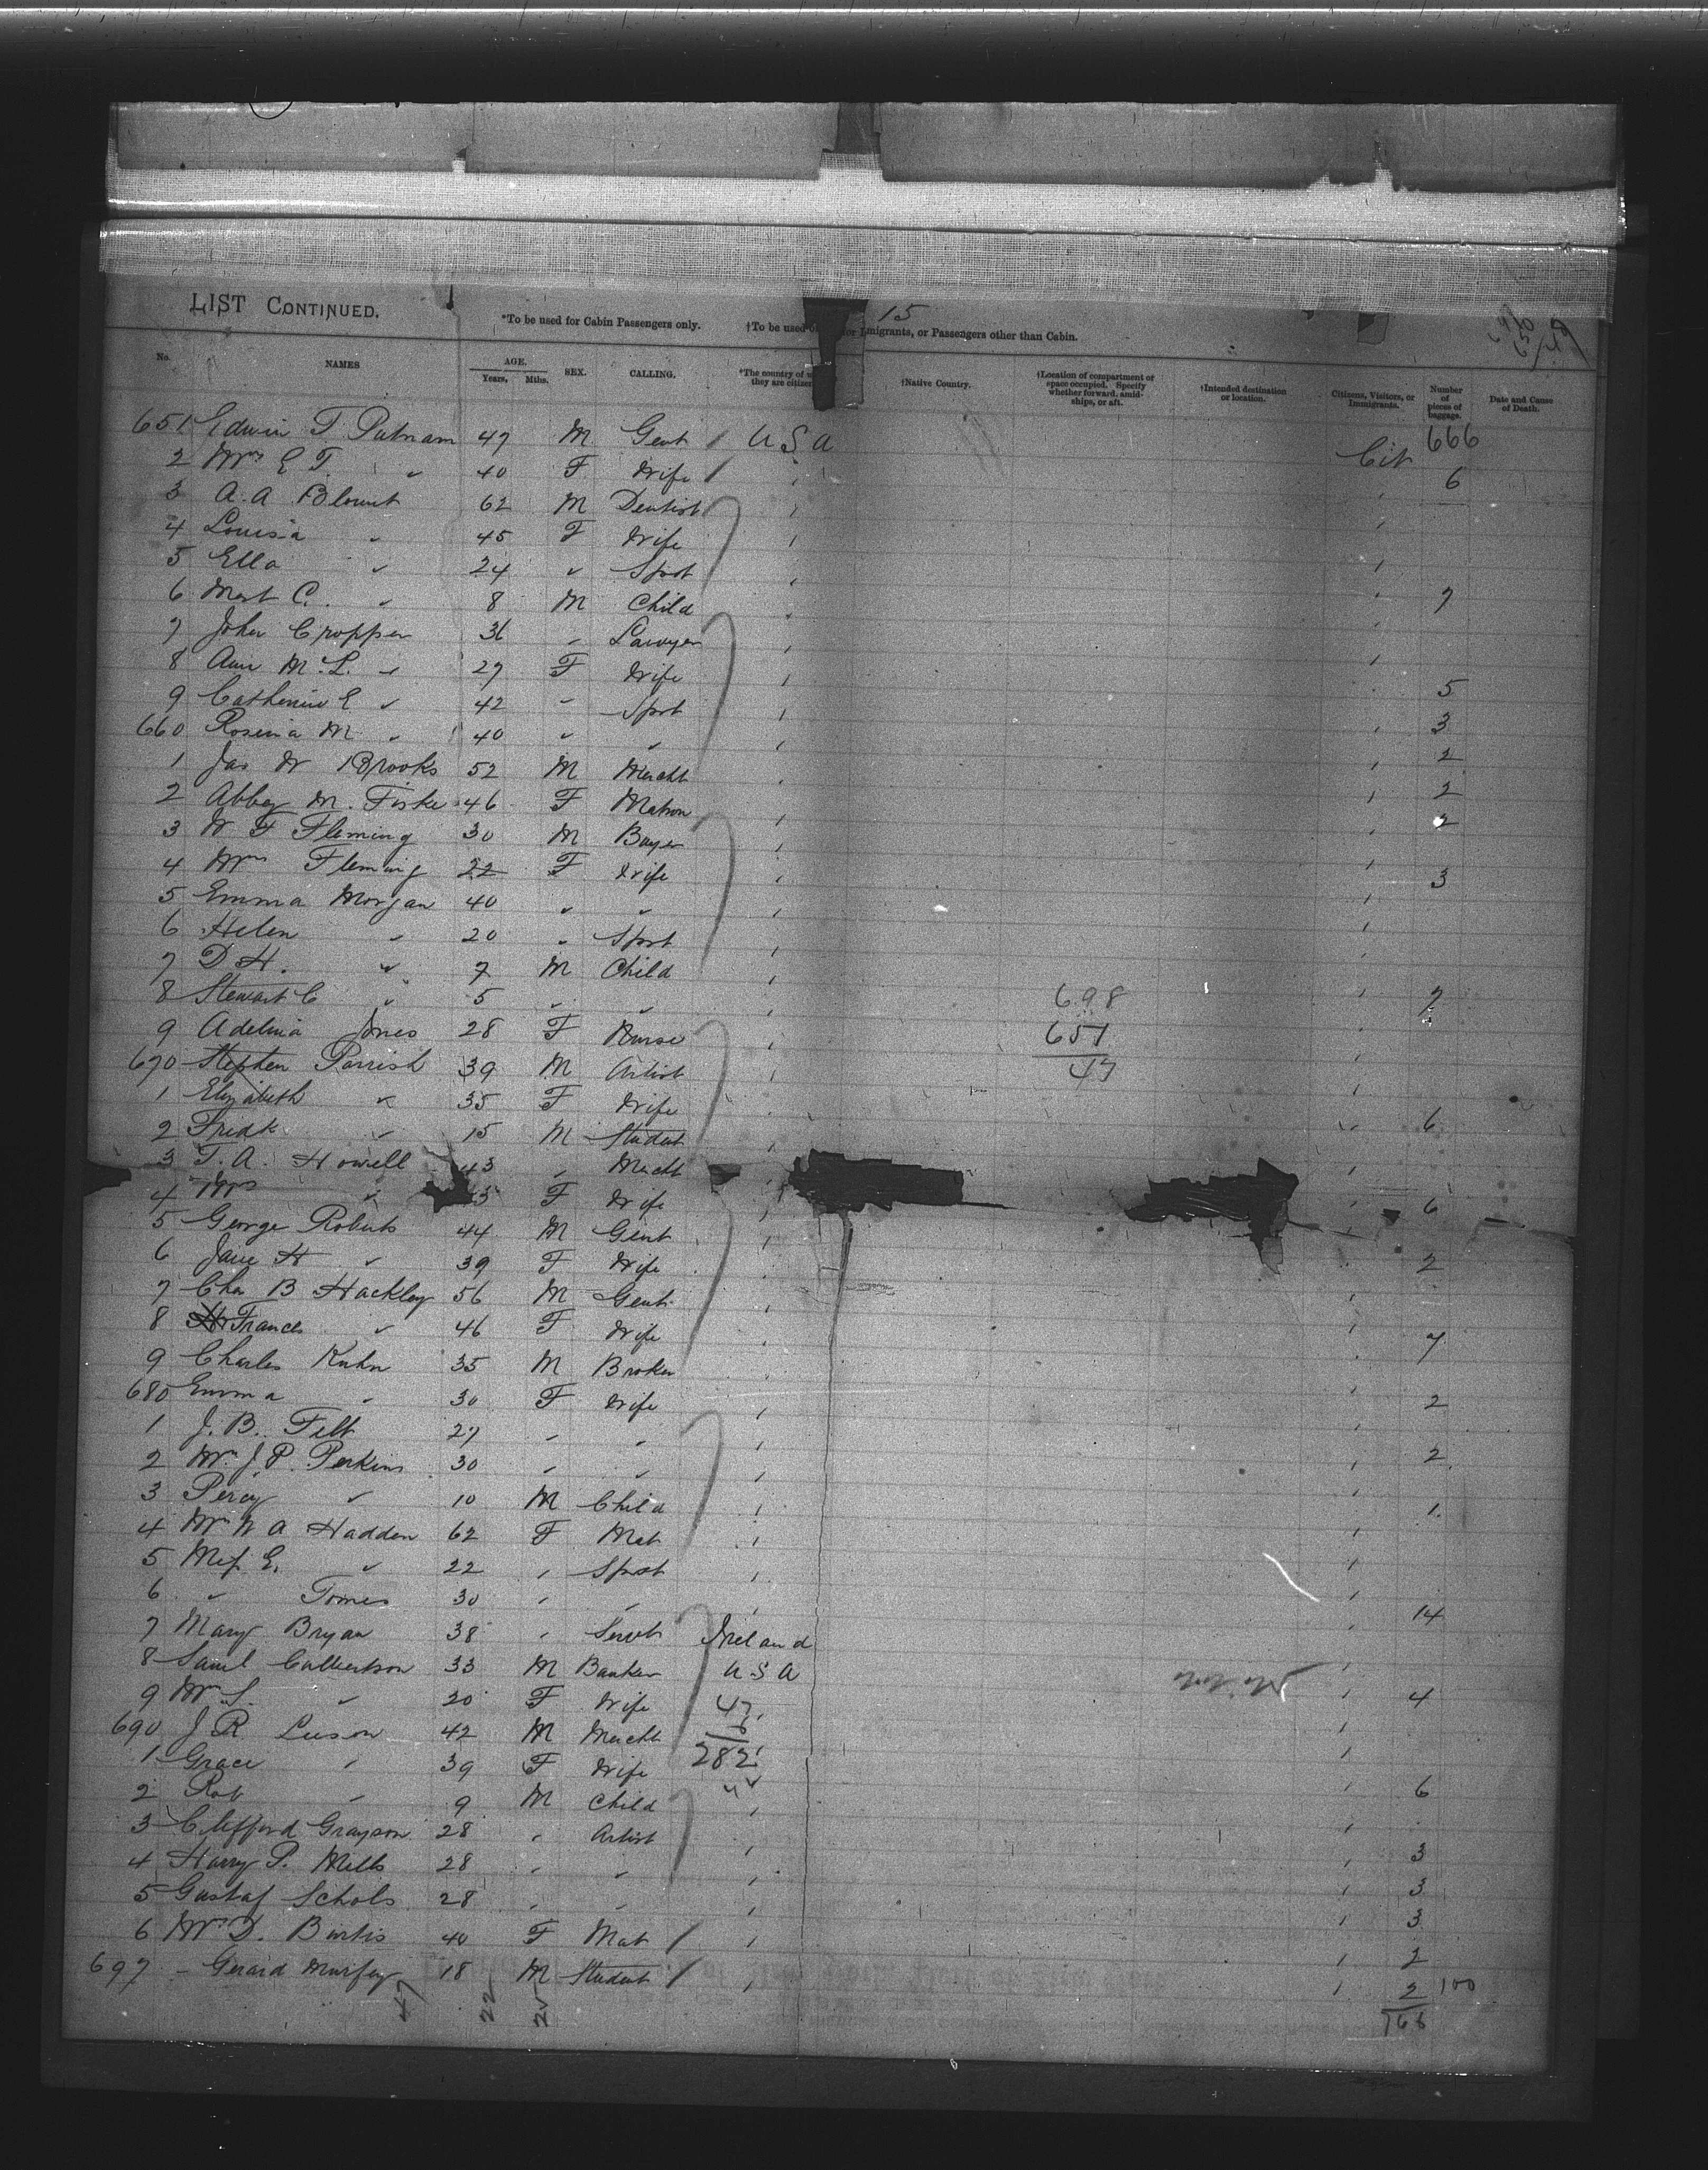 LIST CONTINUED.
15
*To be used for Cabin Passengers only. †To be used migrants, or Passengers other than Cabin.
No. NAMES AGE. Years, Mths. SEX. CALLING. *The country of they are citizen †Native Country. †Location of compartment or space occupied. Specify whether forward, amidships, or aft. †Intended destination or location. Citizens, Visitors, or Immigrants. Number of pieces of baggage. Date and Cause of Death.
666
651 Edwin T Putnam 47 M Gent U S A Cit
2 Mrs E T. " 40 F Wife " " 6
3 A. A Blount 62 M Dentist " "
4 Louisa " 45 F Wife " "
5 Ella " 24 " Spst " "
6 Mort C. " 8 M Child " " 7
7 John Cropper 36 " Lawyer " "
8 Ann M. L. " 27 F Wife " "
9 Catherine E " 42 " Spst " " 5
660 Rosina M " 40 " " " " 3
1 Jas W Brooks 52 M Mercht " " 2
2 Abbey M. Fiske 46 F Matron " " 2
3 W F Fleming 30 M Buyer " " 2
4 Mrs Fleming 22 F Wife " " 3
5 Emma Morgan 40 " " " "
6 Helen " 20 " Spst " "
7 D H. " 7 M Child " "
8 Stewart C " 5 " " " " 7
698
9 Adelina Jones 28 F Nurse " "
651
670 Stephen Parrish 39 M Artist " "
47
1 Elizabeth " 35 F Wife " "
2 Fridk " 15 M Student " " 6
3 T. A. Howell 43 " Mercht " "
4 Mrs " F Wife " " 6
5 George Roberts 44 M Gent " "
6 Jane H " 39 F Wife " " 2
7 Chas B Hackley 56 M Gent " "
8 Frances " 46 F Wife " " 7
9 Charles Kuhn 35 M Broker " "
680 Emma " 30 F Wife " " 2
1 J. B. Felt 27 " " " " 2
2 Mrs J. P. Perkins 30 " " " "
3 Percy " 10 M Child " " 1
4 Mrs W A Hadden 62 F Mat " "
5 Miss E. " 22 " Spst " "
6 " Tomes 30 " " " " 14
7 Mary Bryan 38 " Servt Ireland "
8 Saml Culbertson 33 M Banker U S A "
9 Mrs S. " 20 F Wife " 4
47
6
690 J. R Leeson 42 M Mercht " "
282
1 Grace " 39 F Wife " "
2 Rob " 9 M Child " " 6
3 Clifford Grayson 28 " Artist " "
4 Harry P. Mills 28 " " " " 3
5 Gustaf Schols 28 " " " " 3
6 Mrs D. Burtis 40 F Mat " " 2
697 Gerard Murfey 18 M Student " " 2 100
47 22 25
766